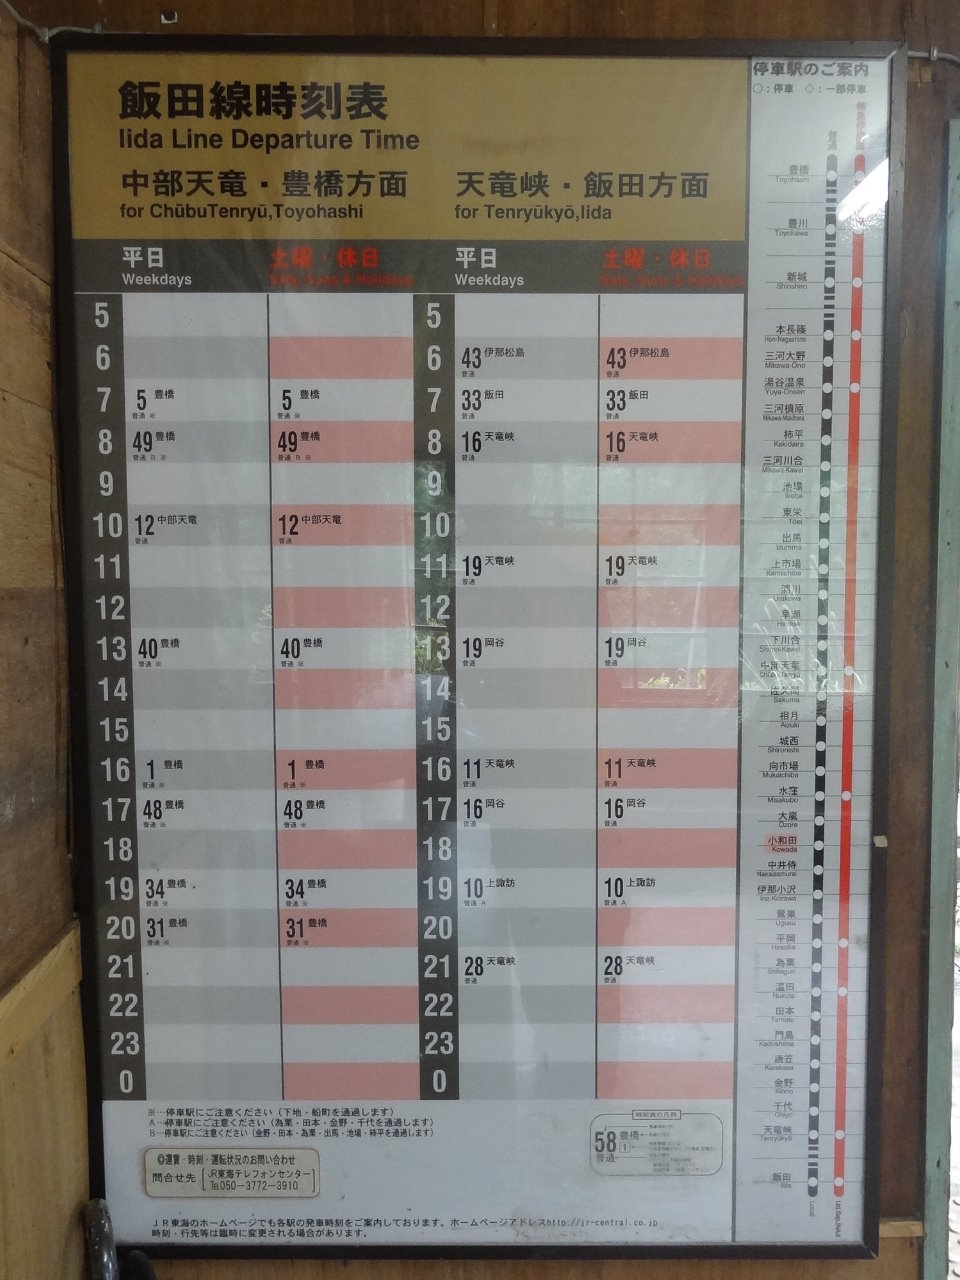 飯田線時刻表
Iida Line Departure Time
中部天竜・豊橋方面
for ChūbuTenryū,Toyohashi
天竜峡・飯田方面
for Tenryūkyō,Iida
平日
Weekdays
土曜・休日
Sats, Suns & Holidays
平日
Weekdays
土曜・休日
Sats, Suns & Holidays
5 5
6 6 43 伊那松島 普通 43 伊那松島 普通
7 5 豊橋 普通 ※ 5 豊橋 普通 ※ 7 33 飯田 普通 33 飯田 普通
8 49 豊橋 普通 B ※ 49 豊橋 普通 B ※ 8 16 天竜峡 普通 16 天竜峡 普通
9 9
10 12 中部天竜 普通 12 中部天竜 普通 10
11 11 19 天竜峡 普通 19 天竜峡 普通
12 12
13 40 豊橋 普通 ※ 40 豊橋 普通 ※ 13 19 岡谷 普通 19 岡谷 普通
14 14
15 15
16 1 豊橋 普通 ※ 1 豊橋 普通 ※ 16 11 天竜峡 普通 11 天竜峡 普通
17 48 豊橋 普通 ※ 48 豊橋 普通 ※ 17 16 岡谷 普通 16 岡谷 普通
18 18
19 34 豊橋 普通 ※ 34 豊橋 普通 ※ 19 10 上諏訪 普通 A 10 上諏訪 普通 A
20 31 豊橋 普通 ※ 31 豊橋 普通 ※ 20
21 21 28 天竜峡 普通 28 天竜峡 普通
22 22
23 23
0 0
※…停車駅にご注意ください（下地・船町を通過します）
A…停車駅にご注意ください（為栗・田本・金野・千代を通過します）
B…停車駅にご注意ください（金野・田本・為栗・出馬・池場・柿平を通過します）
◎運賃・時刻・運転状況のお問い合わせ
問合せ先
JR東海テレフォンセンター
℡050-3772-3910
時刻表の凡例
58 豊橋
1
普通
ＪＲ東海のホームページでも各駅の発車時刻をご案内しております。ホームページアドレスhttp://jr-central.co.jp
時刻・行先等は臨時に変更される場合があります。
停車駅のご案内
○：停車 ◇：一部停車
普通
豊橋
Toyohashi
豊川
Toyokawa
新城
Shinshiro
本長篠
Hon-Nagashino
三河大野
Mikawa-Ono
湯谷温泉
Yuya-Onsen
三河槙原
Mikawa-Makihara
柿平
Kakidaira
三河川合
Mikawa-Kawai
池場
Ikeba
東栄
Tōei
出馬
Izumma
上市場
Kamiichiba
浦川
Urakawa
早瀬
Hayase
下川合
Shimo-Kawai
中部天竜
Chūbu-Tenryū
佐久間
Sakuma
相月
Aizuki
城西
Shironishi
向市場
Mukaichiba
水窪
Misakubo
大嵐
Ozore
小和田
Kowada
中井侍
Nakaisamurai
伊那小沢
Ina-Kozawa
鶯巣
Ugusu
平岡
Hiraoka
為栗
Shiteguri
温田
Nukuta
田本
Tamoto
門島
Kadoshima
唐笠
Karakasa
金野
Kinno
千代
Chiyo
天竜峡
Tenryūkyō
飯田
Iida
Local